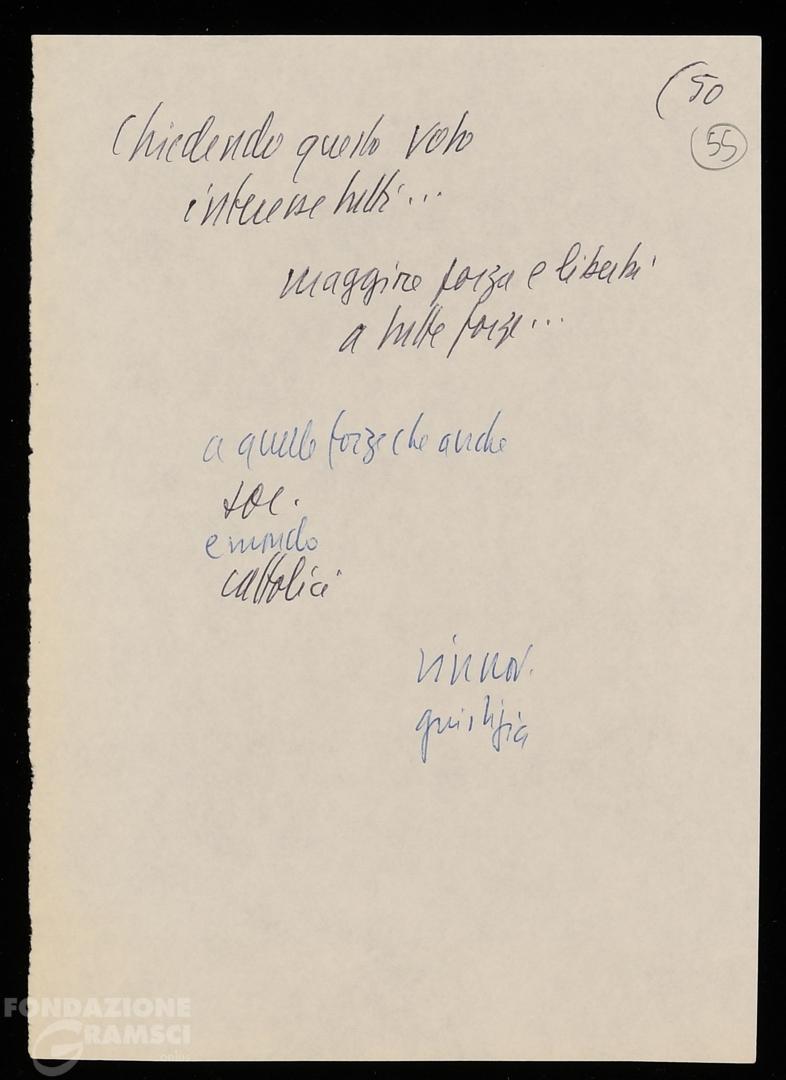 (50
55
Chiedendo questo voto
interesse tutti...
maggiore forza e libertà
a tutte forze...
a quelle forze che anche
soc.
e mondo
cattolici
rinnov.
giustizia
FONDAZIONE
GRAMSCI
onlus